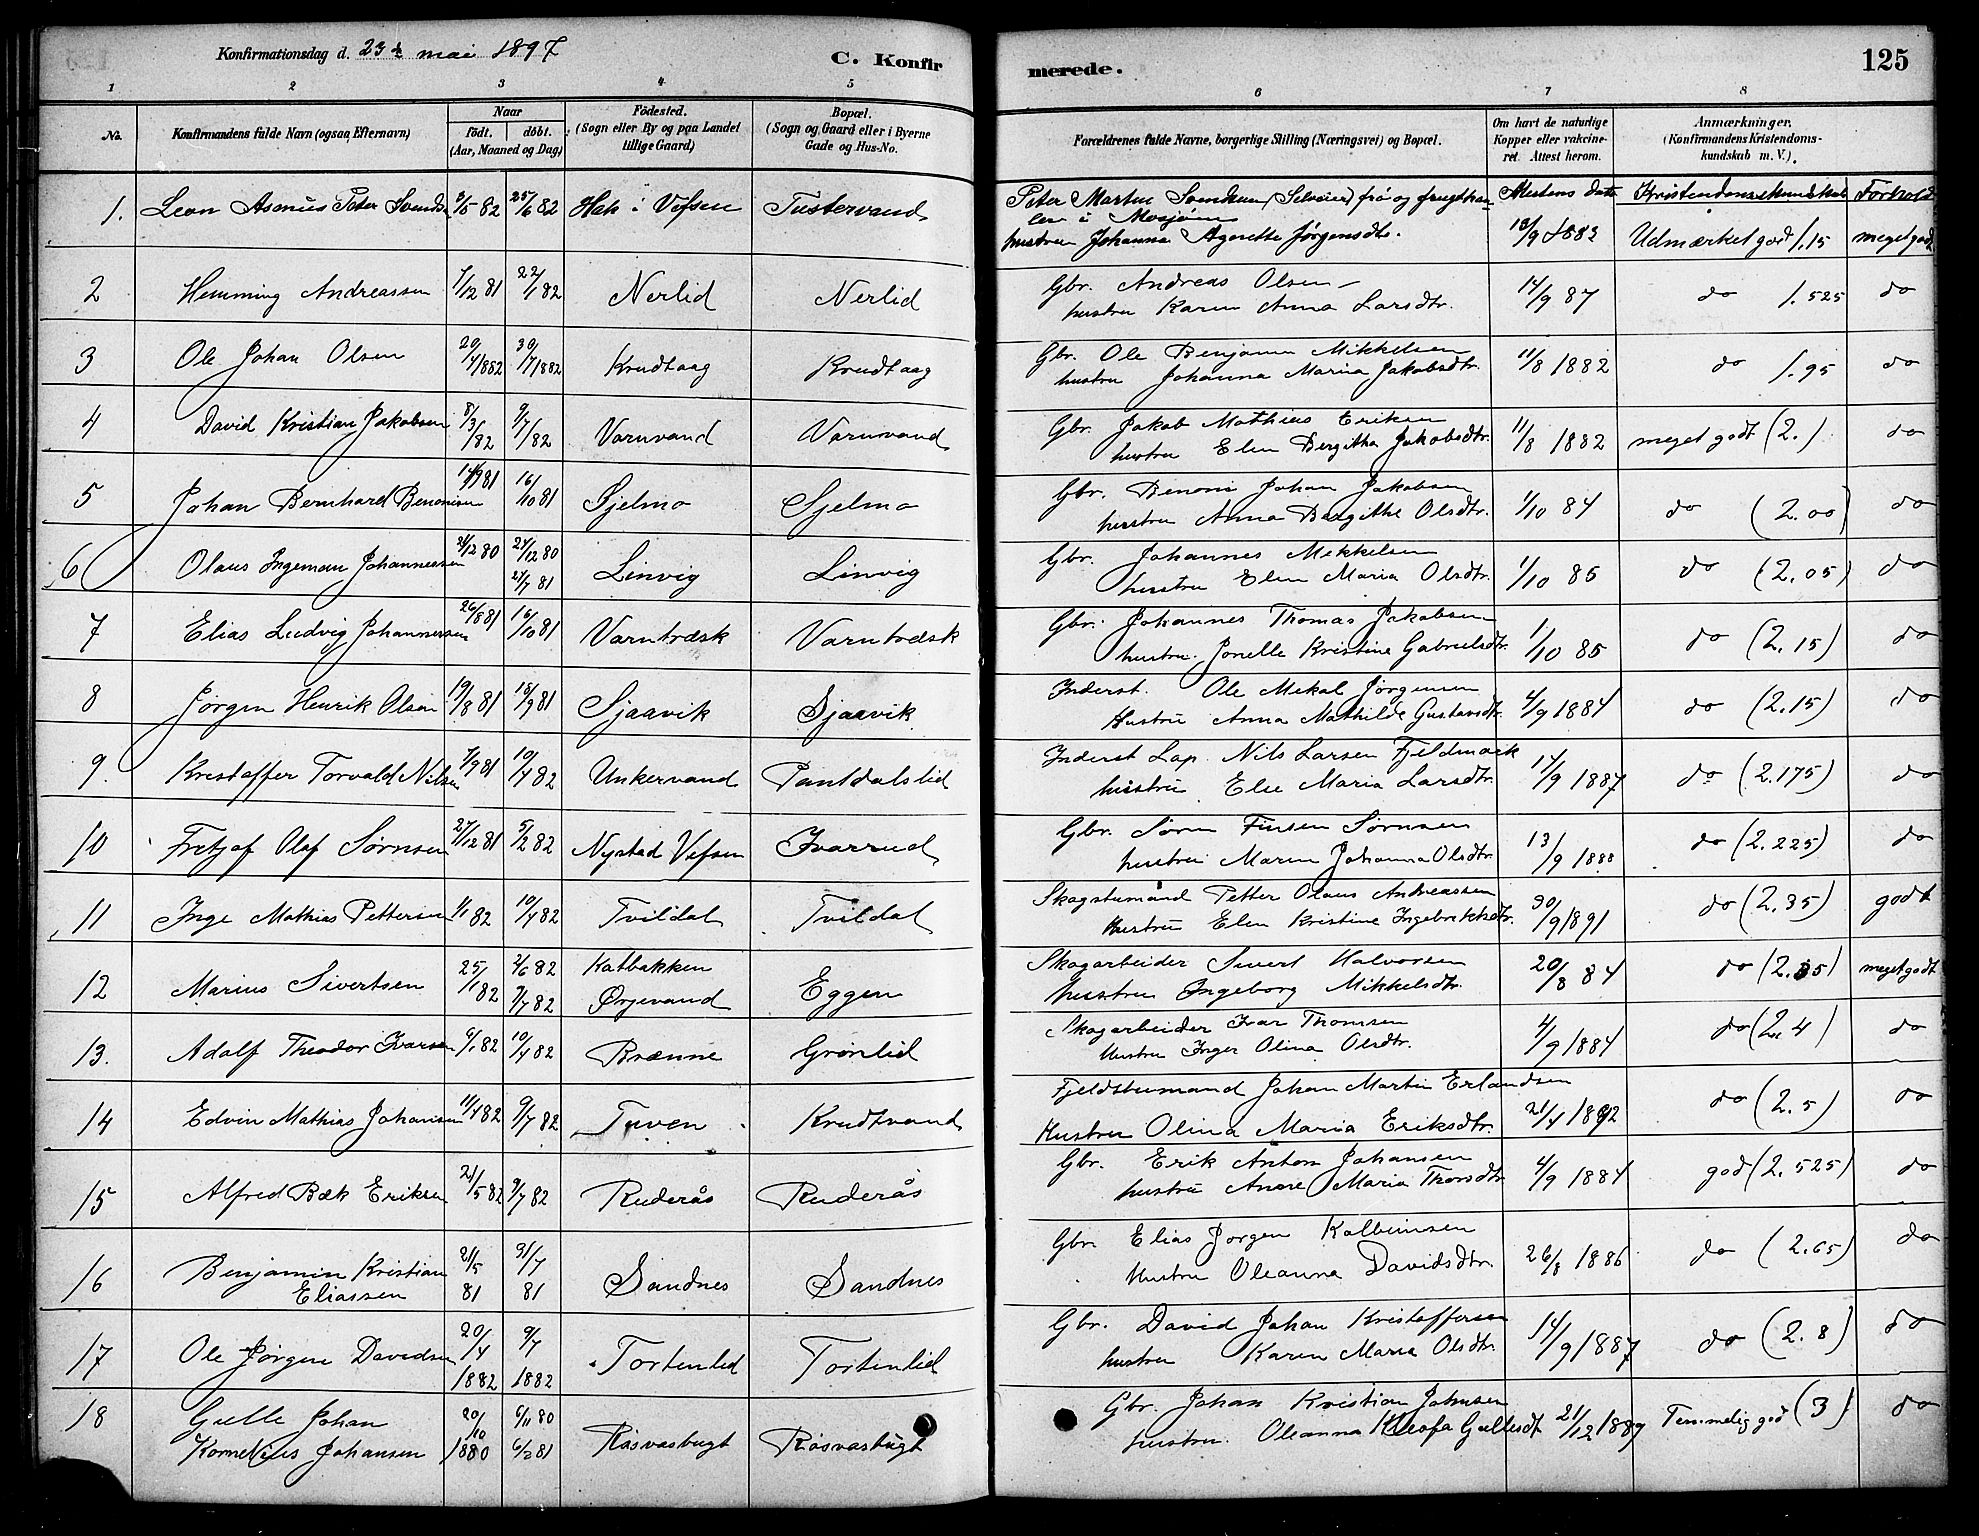 Konfirmationsdag d. 23de mai 1897
C. Konfirmerede.
125
1 2 3 4 5 6 7 8
No.
Konfirmandens fulde Navn (ogsaa Efternavn)
Naar
født. døbt.
(Aar, Maaned og Dag)
Fødested.
(Sogn eller By og paa Landet
tillige Gaard)
Bopæl.
(Sogn og Gaard eller i Byerne
Gade og Hus-No.
Forældrenes fulde Navne, borgerlige Stilling (Næringsvei) og Bopæl.
Om havt de naturlige
Kopper eller vakcine-
ret. Attest herom.
Anmærkninger.
(Konfirmandens Kristendoms-
kundskab m. V.).
Attestens dato Kristendomskundskab Forhold
1. Leon Asmus Peter Svends 9/5 82 25/6 82 Hals i Vefsen Tustervand
Peter Martin Svendsen (Selveier) frø og frugthan-
ler i Mosjøen
hustru Johanna Agerette Jørgensdtr. 18/9 1883 Udmærket god 1.15 meget godt
2 Hemming Andreassen 7/12 81 22/1 82 Nerlid Nerlid
Gbr. Andreas Olsen
hustru Karen Anna Larsdtr. 14/9 87 do 1.525 do
3 Ole Johan Olsen 20/4 1882 30/7 1882 Krudtaag Krudtaag
Gbr. Ole Benjamin Mikkelsen
hustru Johanna Maria Jakobsdtr. 11/8 1882 do 1.95 do
4 David Kristian Jakobsen 8/3/82 9/7/82 Varnvand Varnvand
Gbr. Jakob Mathias Eriksen
hustru Elen Bergitha Jakobsdtr. 11/8 1882 meget godt (2.) do
5 Johan Bernhard Benonisen 14/9 81 16/10 81 Sjelmo Sjelmo
Gbr. Benoni Johan Jakobsen
hustru Anna Bergithe Olsdtr. 1/10 84 do (2.00) do
6 Olaus Ingeman Johannessen 21/12 80 27/12 80
27/7 81 Linvig Linvig
Gbr. Johannes Mikkelsen
hustru Elen Maria Olsdtr. 1/10 85 do (2.05) do
7 Elias Ludvig Johannessen 26/8 81 16/10 81 Varntræsk Varntræsk
Gbr. Johannes Thomas Jakobsen
hustru. Jonelle Kristine Gabrielsdtr. 1/10 85 do (2.15) do
8 Jørgen Henrik Olsen 19/8 81 18/9 81 Sjaavik Sjaavik
Inderst. Ole Mekal Jørgensen
Hustru Anna Mathilde Gustavsdtr. 4/9 1884 do (2.15) do
9. Kristoffer Torvald Nilsen 7/9 81 10/4 82 Unkervand Pantdalslid
Inderst Lap. Nils Larsen Fjeldmoek
hustru Else Maria Larsdtr. 17/9 1887 do (2.175) do
10 Fretjof Olaf Sørnsen 27/12 81 5/2 82 Nystad Vefsen Ivarrud
Gbr. Søren Finsen Sørnsen
hustru Maren Johanna Olsdtr. 13/9 1888 do (2.225) do
11 Inge Mathias Pettersen 1/1 82 10/4 82 Tvildal Tvildal
Skogstumand Petter Olaus Andreassen
Hustru Elen Kristine Ingebrektsdtr. 30/9 1891 do (2.35) godt
12 Marius Sivertsen 25/1 82 2/6 82
9/7 82 Katbakken
Ørjevand Eggen
Skogarbeider Sivert Halvorsen
hustru Ingeborg Mikkelsdtr. 20/8 84 do (2.35) meget godt
13. Adolf Theodor Ivarsen 6/1 82 10/4 82 Brænne Grønlid
Skogarbeider Ivar Thomsen
Hustru Inger Olina Olsdtr. 4/9 1884 do (2.4) do
14 Edvin Mathias Johansen 11/4 82 9/7 82 Tuven Krudtvand
Fjeldstumand Johan Martin Erlandsen
Hustru Olina Maria Eriksdtr. 21/4 1892 do (2.5) do
15 Alfred Bæk Eriksen 21/5 82 9/7 82 Ruderås Ruderås
Gbr. Erik Anton Johansen
hustru Anne Maria Thorsdtr. 4/9 1884 god (2.525) do
16 Benjamin Kristian
Eliassen 21/5 81 31/7 81 Sandnes Sandnes
Gbr. Elias Jørgen Kolbeinsen
Hustru Oleanna Davidsdtr. 26/8 1886 do (2.65) do
17 Ole Jørgen Davidsen 20/4 1882 9/7 1882 Tortenlid Tortenlid
Gbr. David Johan Kristoffersen
hustru Karen Maria Olsdtr. 14/9 1887 do (2.8) do
18 Gulle Johan
Kornelius Johansen 20/10 1880 6/11 80
6/2 81 Røsvasbugt Røsvasbugt
Gbr. Johan Kristian Johnsen
hustru. Oleanna Kleofa Gullesdt 21/12 1887 Temmelig god (3) do